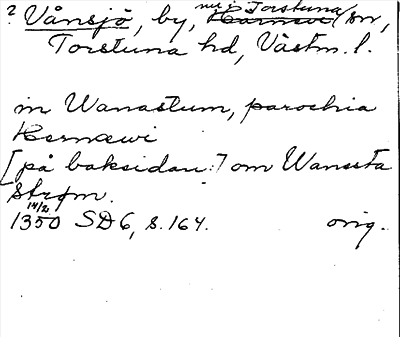 ? Vånsjö, by, nu i Torstuna Härnevi sn,
Torstuna hd, Västm. l.
in Wanastum, parochia
Hernæwi
[på baksidan:] om Wanesta
Strøm.
14/2 1350 SD 6, s. 164. orig.